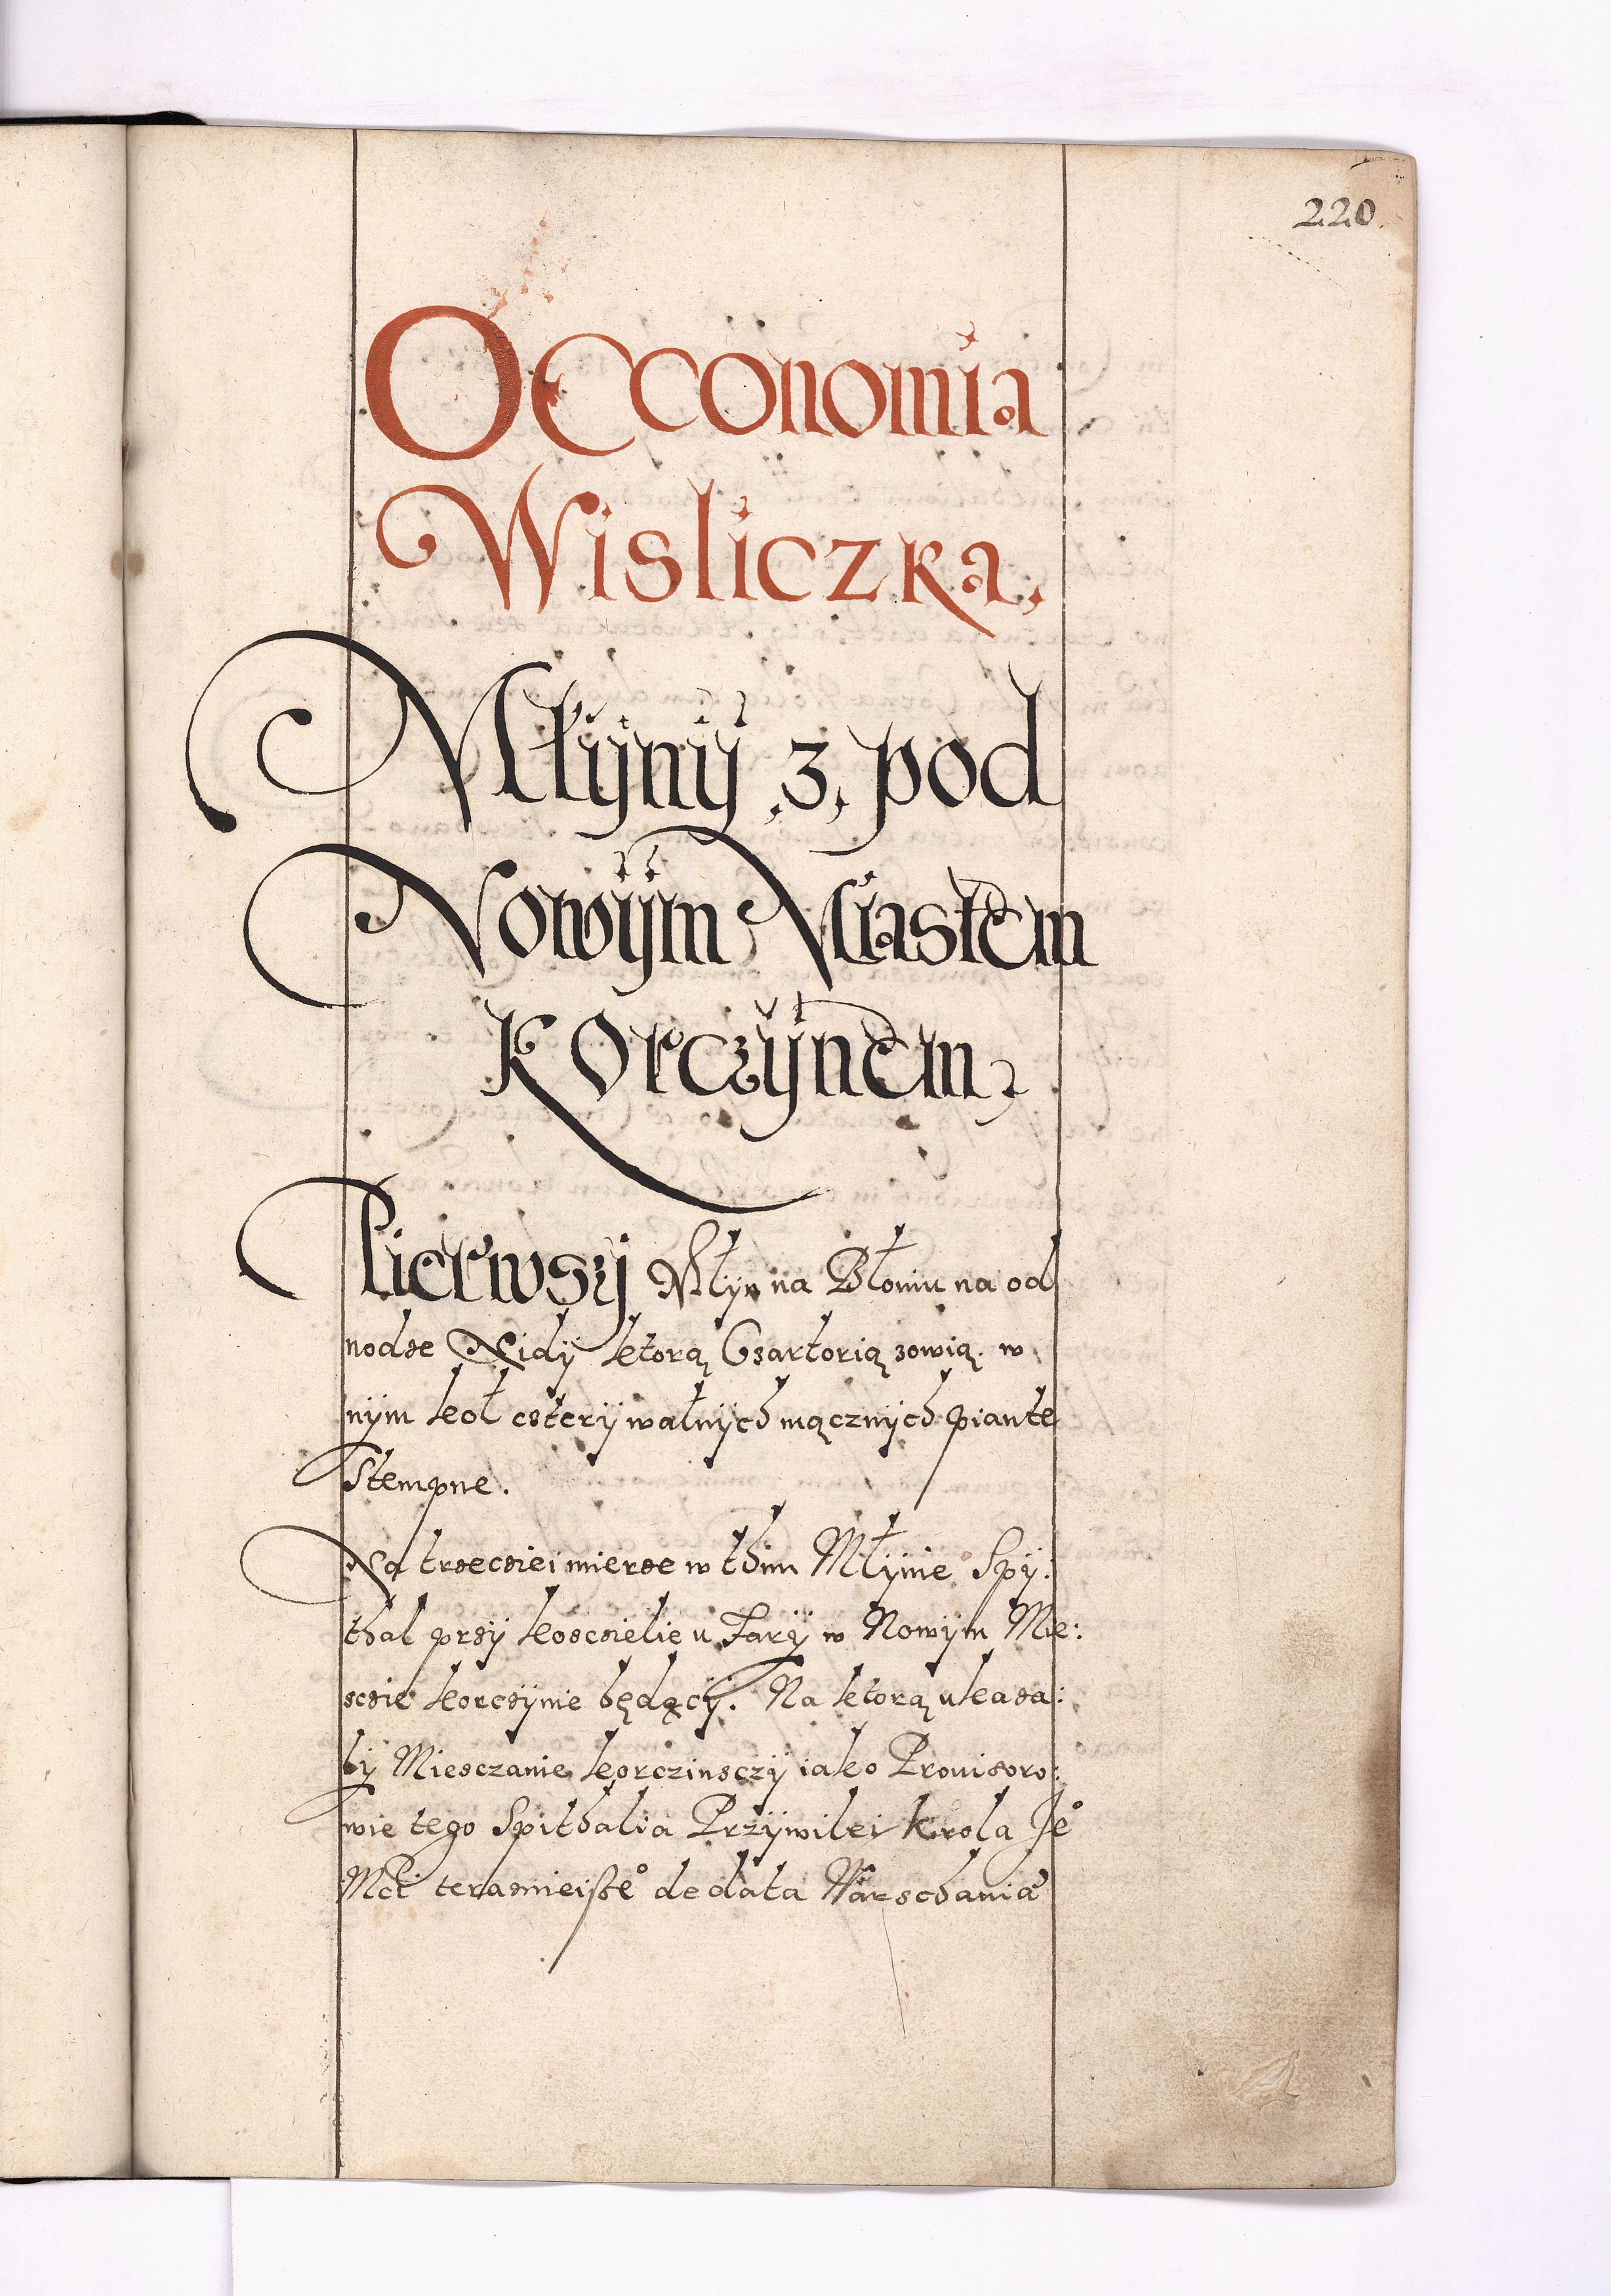 220.
Oeconomia
Wisliczka,
Młÿnÿ ,3, pod
Nowÿm Miastem
Korczÿnem,
Pierwszÿ Młÿn na Błoniu na od
nodze Nidÿ ktorą Czartorią zowią. w
nÿm koł czterÿ walnÿch mącznÿch piante
Stempne.
Na trzecziei mierze w thim Młÿnie Spÿ:
thal przÿ kosczielie u Farÿ w Nowÿm Mie:
sczie korczÿnie będącÿ. Na ktorą ukaza:
lÿ Miesczanie korczinsczÿ iako Prouisoro:
wie tego Spithalia Przÿwilei krola Je°
Mći teraznieiße° de data Warschauiae